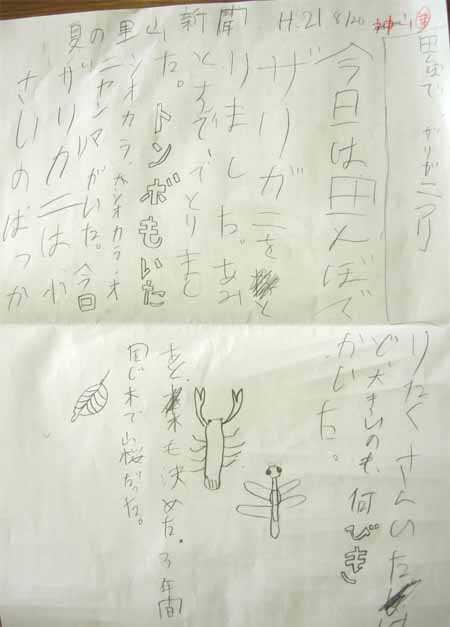 夏の里山新聞
H.21 8/20
田んぼで
今日は田んぼで
ザリガニをと
りました。あみ
とすででとりまし
た。トンボもいた
シオカラ、大シオカラ、オ
ニヤンマがいた。今回
ザリガニは小
さいのばっか
りたくさんいたけ
ど大きいのも、何びき
かいた。
あと、木も決めた。3年間
同じ木で山桜だった。